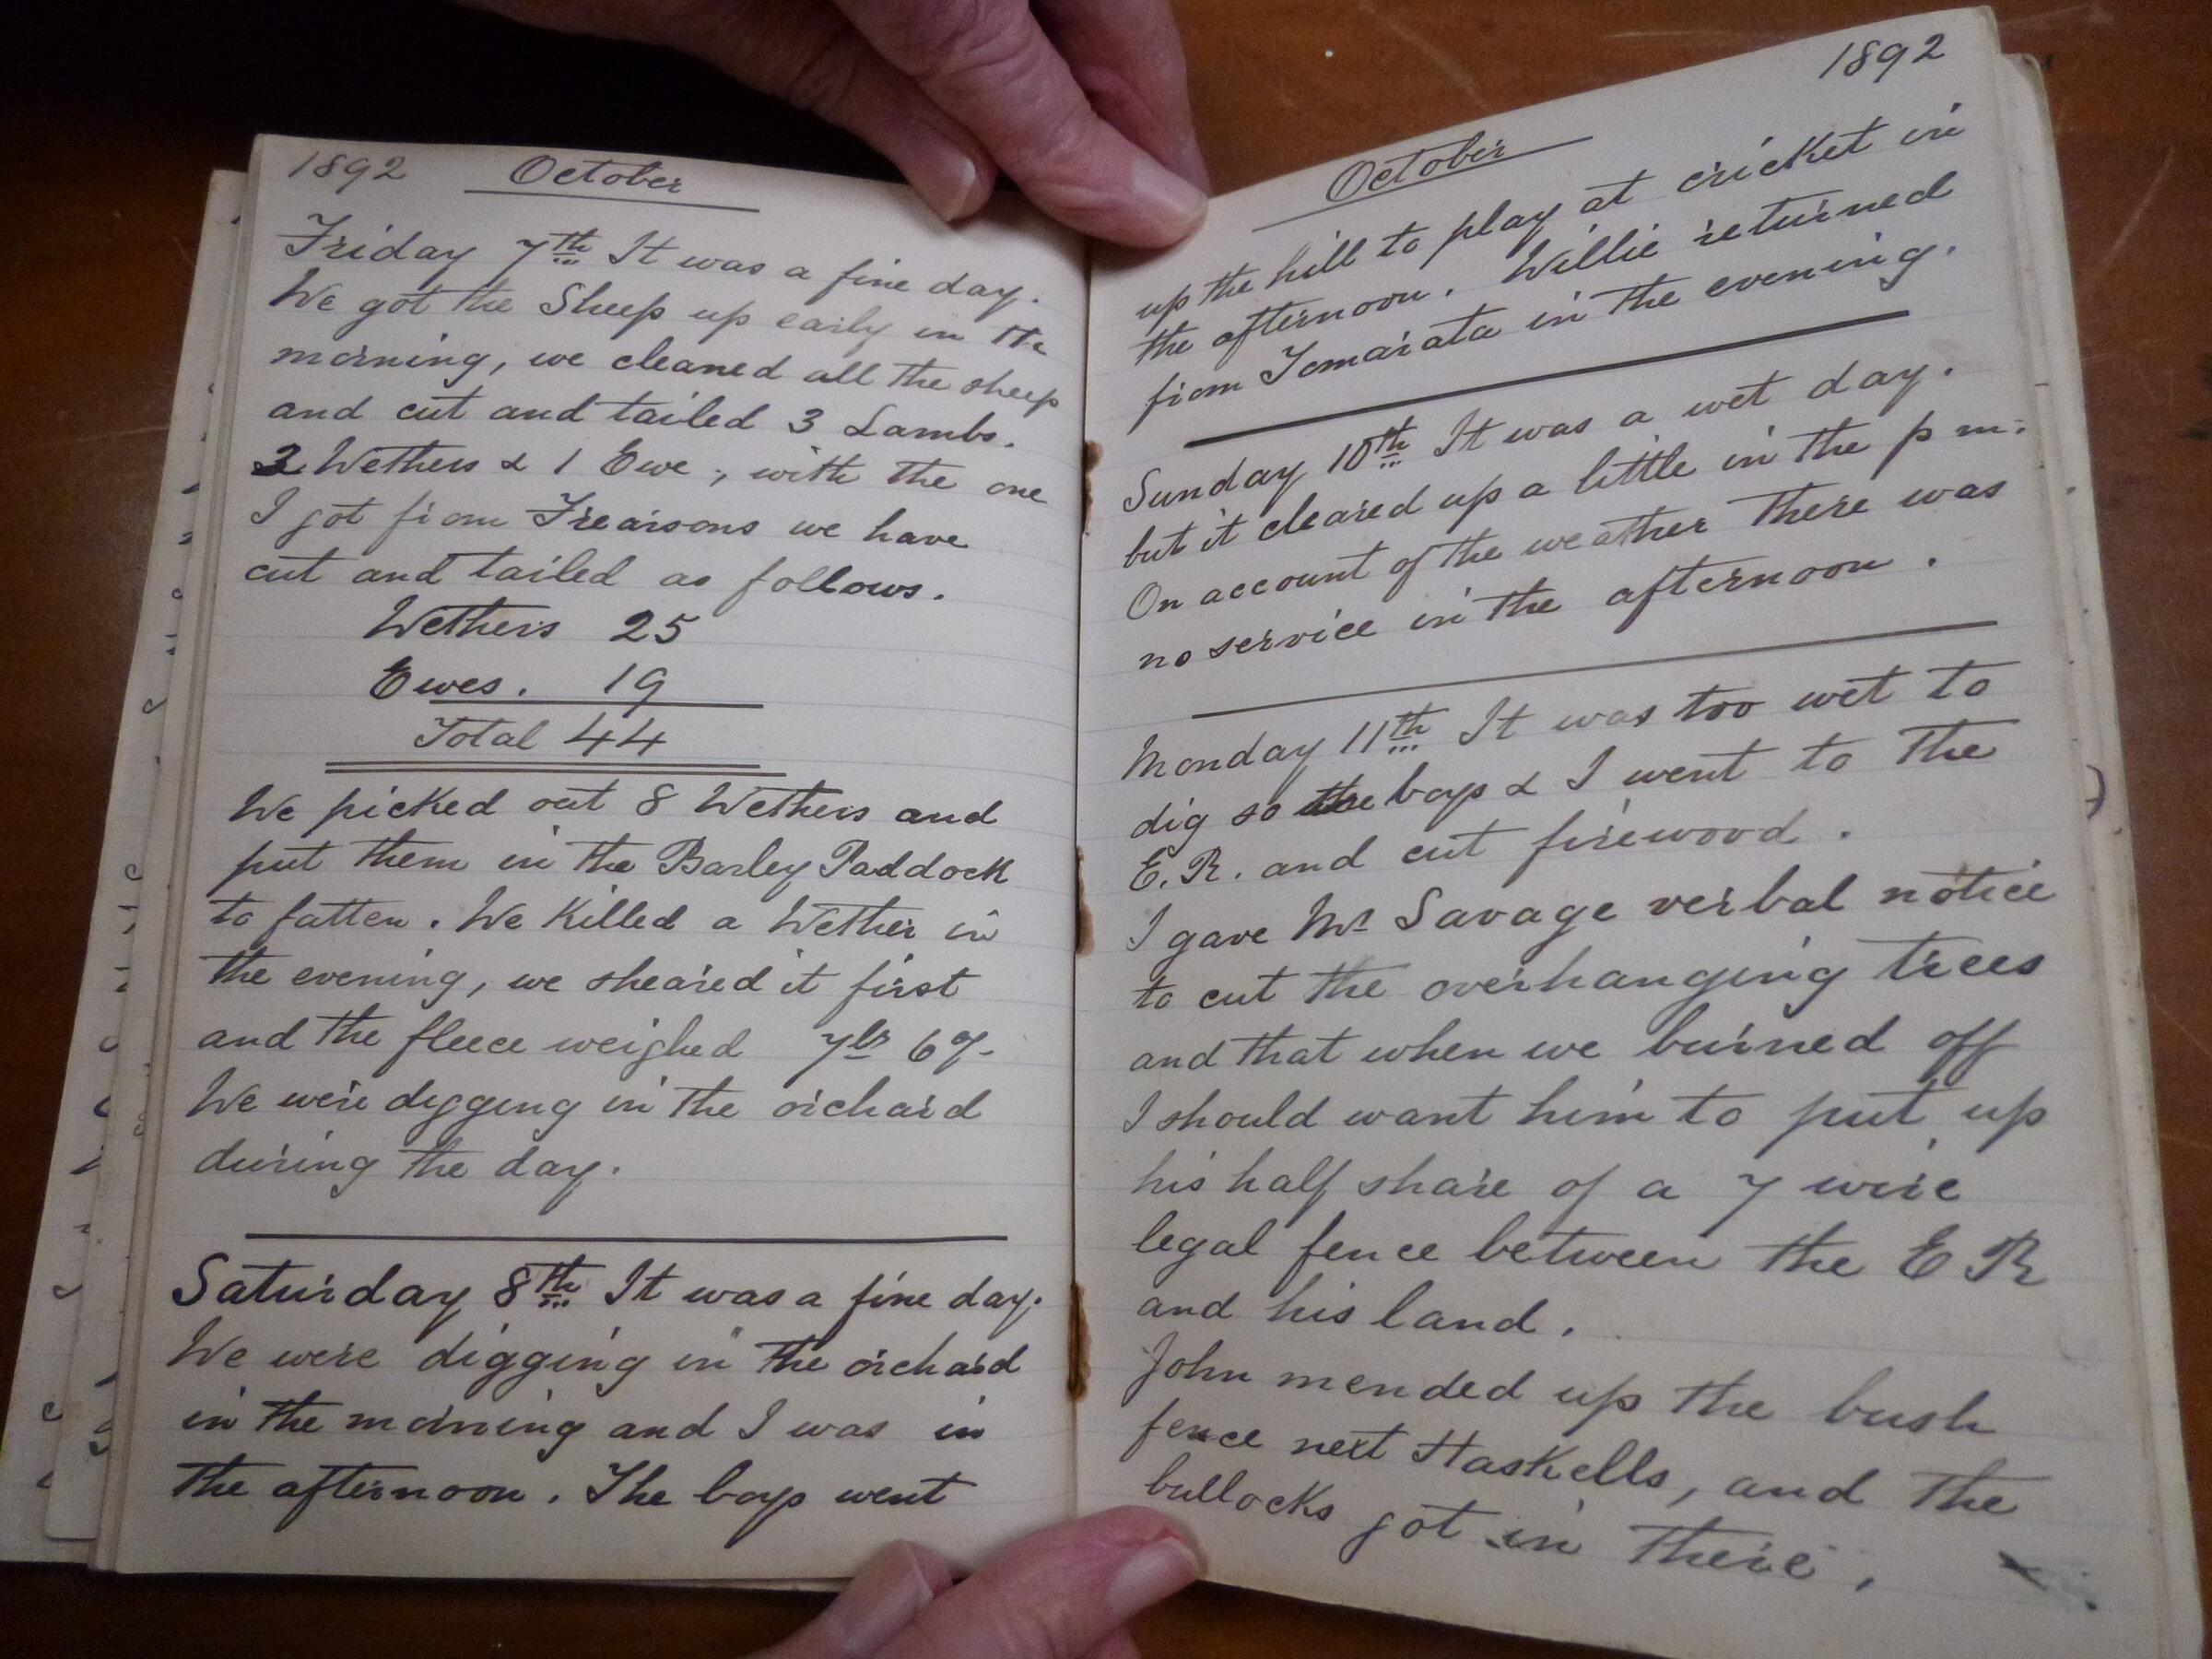 1892 October
Friday 7th It was a fine day.
We got the Sheep up early in the
morning, we cleaned all the sheep
and cut and tailed 3 Lambs.
2 Wethers & 1 Ewe, with the one
I got from Frearsons we have
cut and tailed as follows.
Wethers 25
Ewes. 19
Total 44
We picked out 8 Wethers and
put them in the Barley Paddock
to fatten. We Killed a Wether in
the evening, we sheared it first
and the fleece weighed 7lbs
We were digging in the orchard
during the day.
Saturday 8th It was a fine day.
We were digging in the orchard
in the morning and I was in
the afternoon. The boys went
1892
October
up the hill to play at cricket in
the afternoon. Willie returned
from Tomarata in the evening.
Sunday 10th It was a wet day.
but it cleared up a little in the p m.
On account of the weather there was
no service in the afternoon.
Monday 11th It was too wet to
dig so the boys & I went to the
E. R. and cut firewood.
I gave Mr Savage verbal notice
to cut the overhanging trees
and that when we burned off
I should want him to put up
his half share of a 7 wire
legal fence between the E R
and his land.
John mended up the bush
fence next Haskells, and the
bullocks got in there,